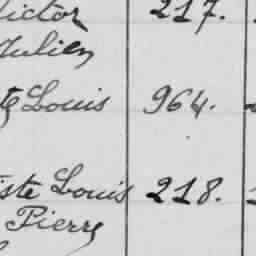 Victor 217.
Julien
te Louis 964.
iste Louis 218.
Pierre